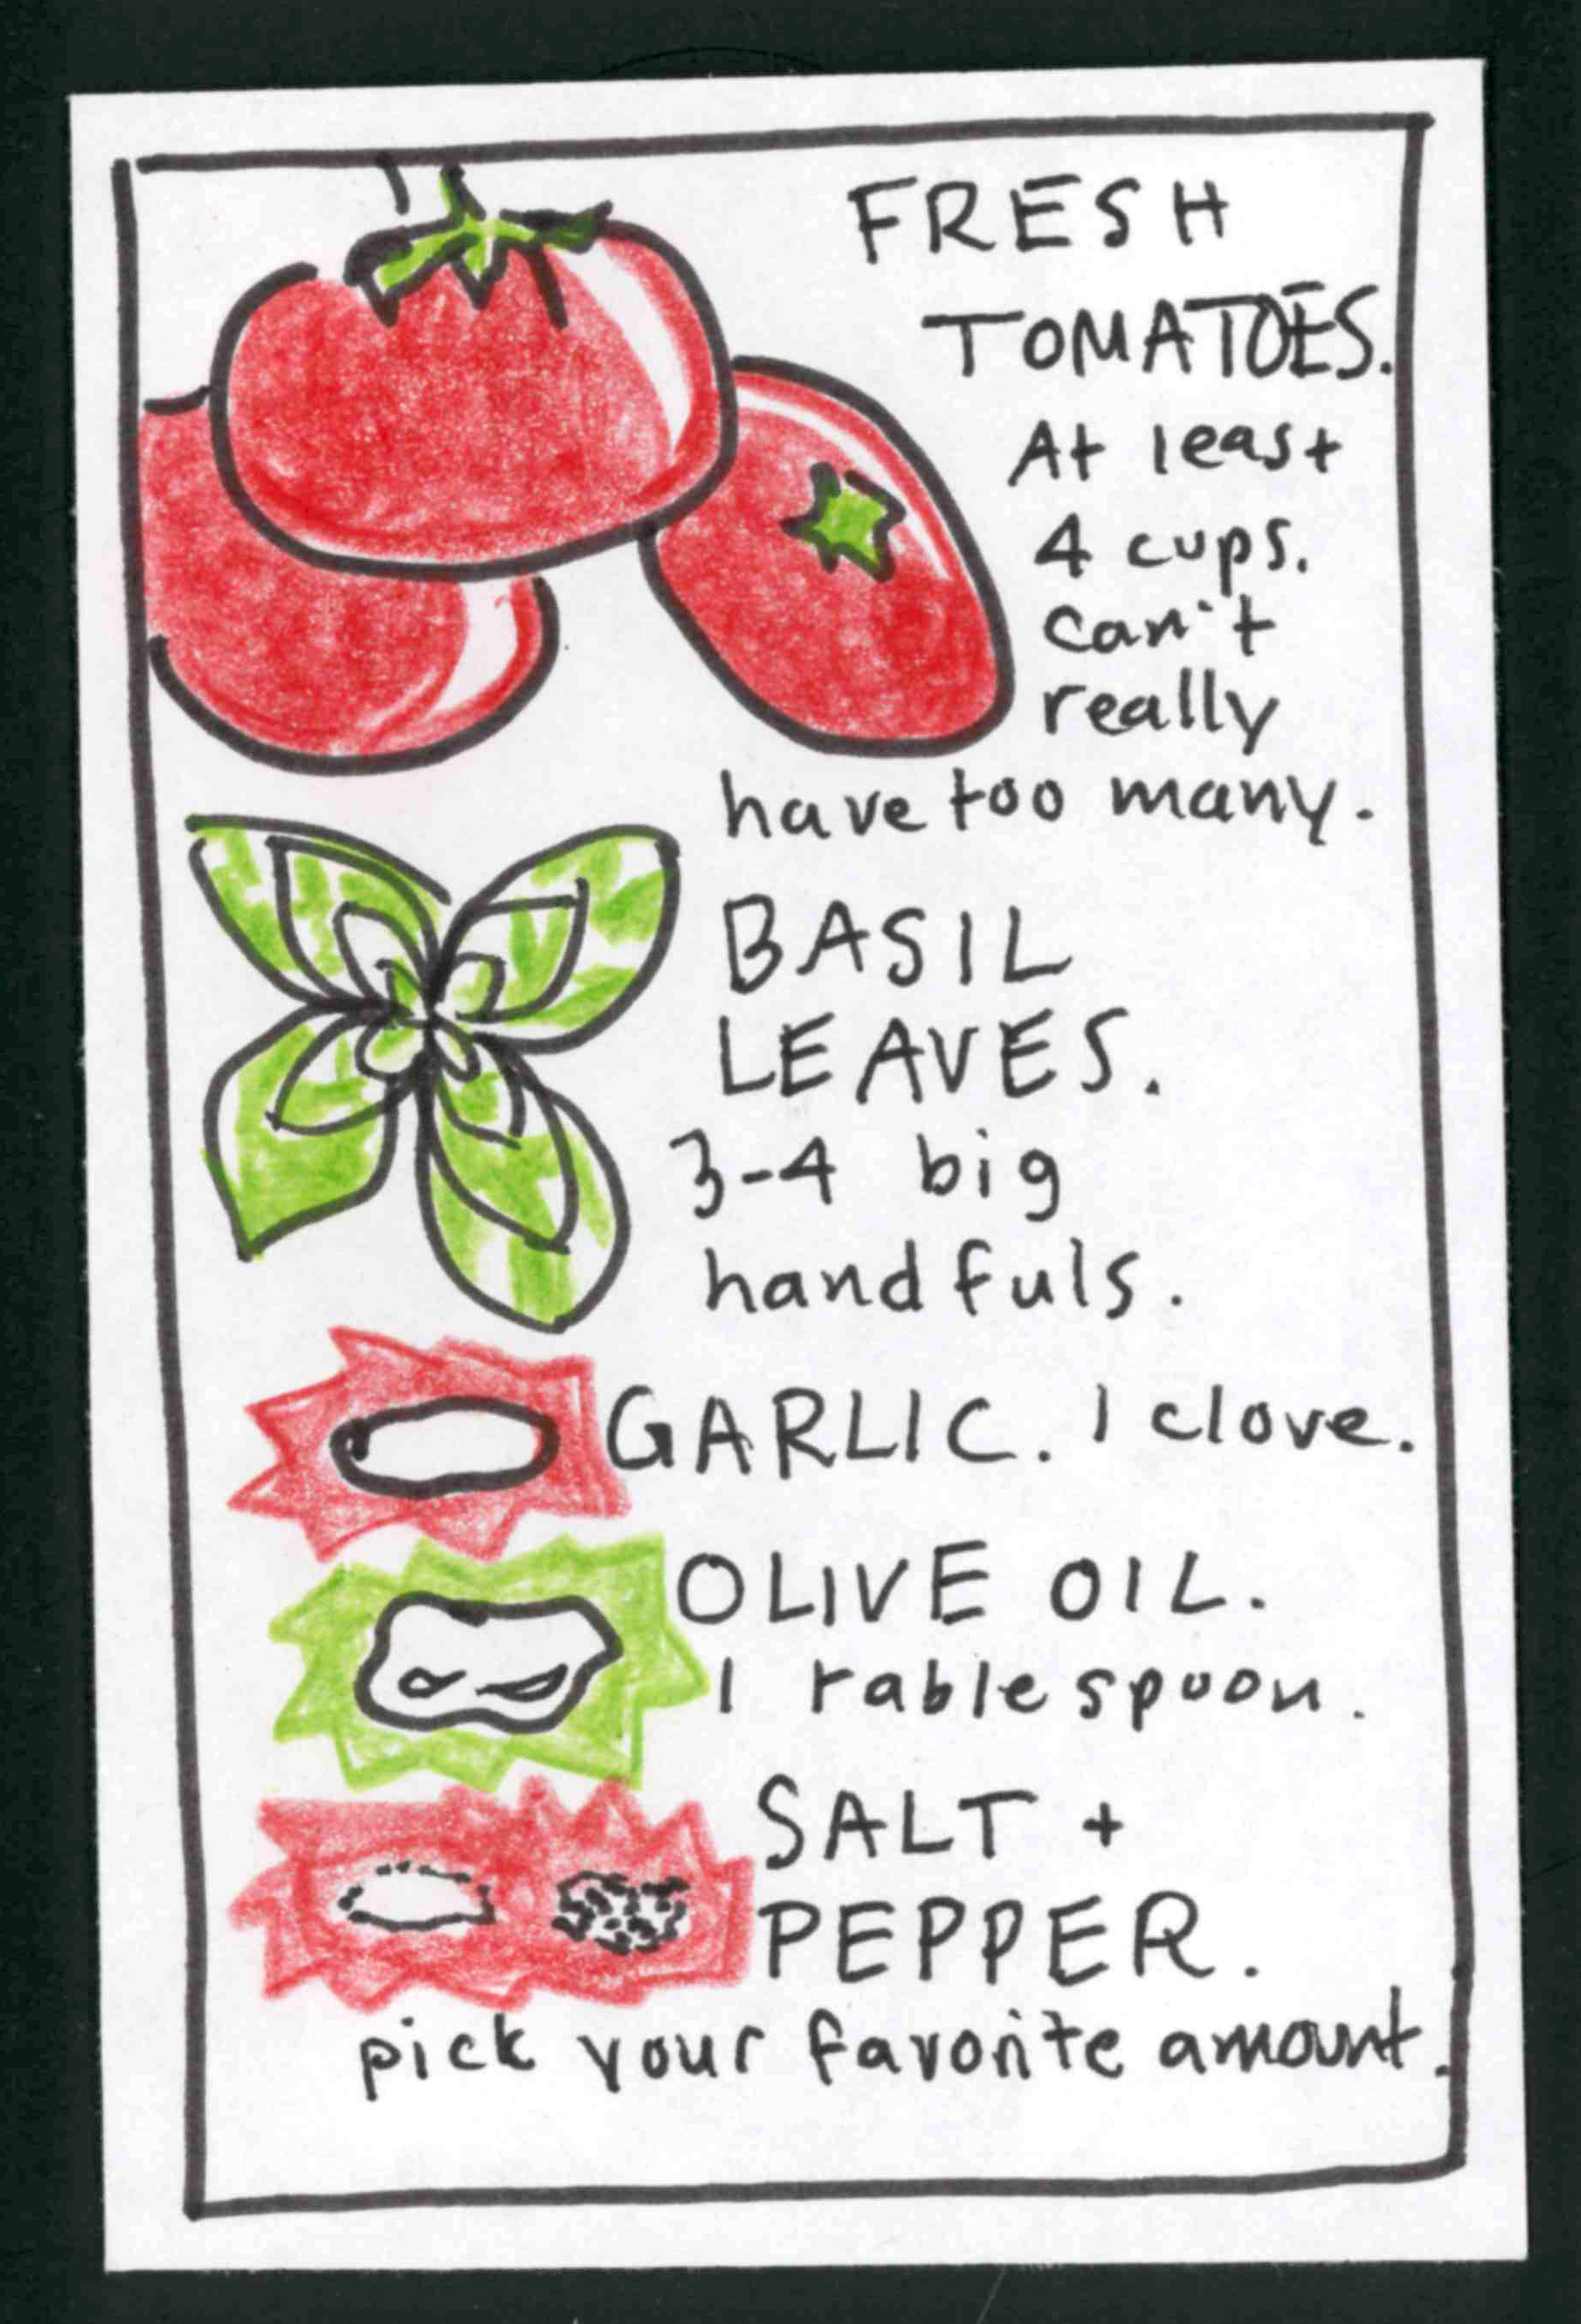 FRESH
TOMATOES.
At least
4 cups.
can't
really
have too many.
BASIL
LEAVES.
3-4 big
handfuls.
GARLIC. 1 clove.
OLIVE OIL.
1 tablespoon.
SALT +
PEPPER.
pick your favorite amount.